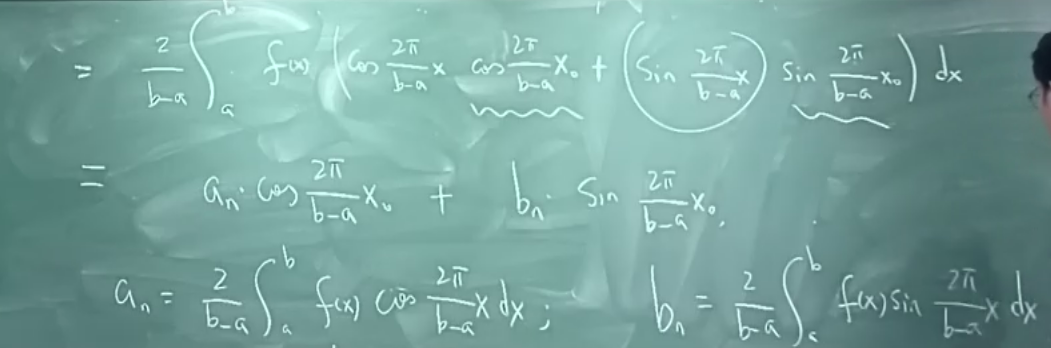 = \frac{2}{b-a} \int_a^b f(x) \left( \cos \frac{2\pi}{b-a} x \cos \frac{2\pi}{b-a} x_0 + \left( \sin \frac{2\pi}{b-a} x \right) \sin \frac{2\pi}{b-a} x_0 \right) dx
= a_n \cdot \cos \frac{2\pi}{b-a} x_0 + b_n \cdot \sin \frac{2\pi}{b-a} x_0.
a_n = \frac{2}{b-a} \int_a^b f(x) \cos \frac{2\pi}{b-a} x \, dx ; b_n = \frac{2}{b-a} \int_a^b f(x) \sin \frac{2\pi}{b-a} x \, dx